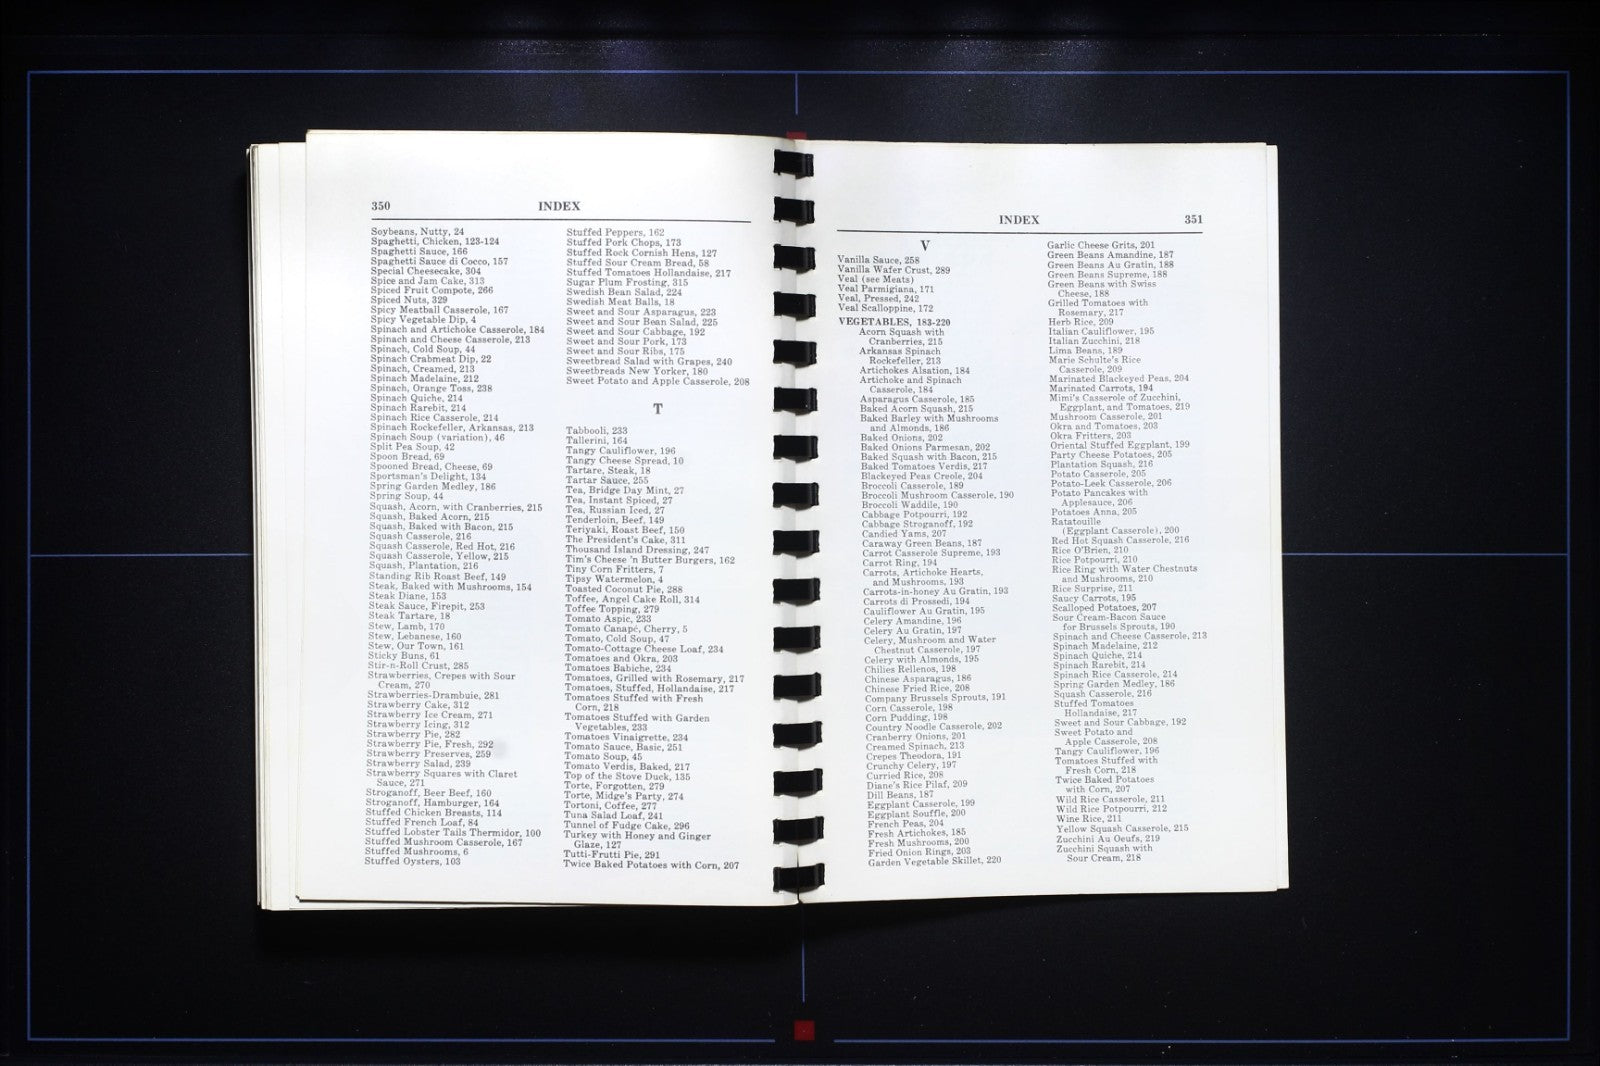 350
INDEX
Soybeans, Nutty, 24
Spaghetti, Chicken, 123-124
Spaghetti Sauce, 166
Spaghetti Sauce di Cocco, 157
Special Cheesecake, 304
Spice and Jam Cake, 313
Spiced Fruit Compote, 266
Spiced Nuts, 329
Spicy Meatball Casserole, 167
Spicy Vegetable Dip, 4
Spinach and Artichoke Casserole, 184
Spinach and Cheese Casserole, 213
Spinach, Cold Soup, 44
Spinach Crabmeat Dip, 22
Spinach, Creamed, 213
Spinach Madelaine, 212
Spinach, Orange Toss, 238
Spinach Quiche, 214
Spinach Rarebit, 214
Spinach Rice Casserole, 214
Spinach Rockefeller, Arkansas, 213
Spinach Soup (variation), 46
Split Pea Soup, 42
Spoon Bread, 69
Spooned Bread, Cheese, 69
Sportsman's Delight, 134
Spring Garden Medley, 186
Spring Soup, 44
Squash, Acorn, with Cranberries, 215
Squash, Baked Acorn, 215
Squash, Baked with Bacon, 215
Squash Casserole, 216
Squash Casserole, Red Hot, 216
Squash Casserole, Yellow, 215
Squash, Plantation, 216
Standing Rib Roast Beef, 149
Steak, Baked with Mushrooms, 154
Steak Diane, 153
Steak Sauce, Firepit, 253
Steak Tartare, 18
Stew, Lamb, 170
Stew, Lebanese, 160
Stew, Our Town, 161
Sticky Buns, 61
Stir-n-Roll Crust, 285
Strawberries, Crepes with Sour
Cream, 270
Strawberries-Drambuie, 281
Strawberry Cake, 312
Strawberry Ice Cream, 271
Strawberry Icing, 312
Strawberry Pie, 282
Strawberry Pie, Fresh, 292
Strawberry Preserves, 259
Strawberry Salad, 239
Strawberry Squares with Claret
Sauce, 271
Stroganoff, Beer Beef, 160
Stroganoff, Hamburger, 164
Stuffed Chicken Breasts, 114
Stuffed French Loaf, 84
Stuffed Lobster Tails Thermidor, 100
Stuffed Mushroom Casserole, 167
Stuffed Mushrooms, 6
Stuffed Oysters, 103
Stuffed Peppers, 162
Stuffed Pork Chops, 173
Stuffed Rock Cornish Hens, 127
Stuffed Sour Cream Bread, 58
Stuffed Tomatoes Hollandaise, 217
Sugar Plum Frosting, 315
Swedish Bean Salad, 224
Swedish Meat Balls, 18
Sweet and Sour Asparagus, 223
Sweet and Sour Bean Salad, 225
Sweet and Sour Cabbage, 192
Sweet and Sour Pork, 173
Sweet and Sour Ribs, 175
Sweetbread Salad with Grapes, 240
Sweetbreads New Yorker, 180
Sweet Potato and Apple Casserole, 208
T
Tabbooli, 233
Tallerini, 164
Tangy Cauliflower, 196
Tangy Cheese Spread, 10
Tartare, Steak, 18
Tartar Sauce, 255
Tea, Bridge Day Mint, 27
Tea, Instant Spiced, 27
Tea, Russian Iced, 27
Tenderloin, Beef, 149
Teriyaki, Roast Beef, 150
The President's Cake, 311
Thousand Island Dressing, 247
Tim's Cheese 'n Butter Burgers, 162
Tiny Corn Fritters, 7
Tipsy Watermelon, 4
Toasted Coconut Pie, 288
Toffee, Angel Cake Roll, 314
Toffee Topping, 279
Tomato Aspic, 233
Tomato Canapé, Cherry, 5
Tomato, Cold Soup, 47
Tomato-Cottage Cheese Loaf, 234
Tomatoes and Okra, 203
Tomatoes Babiche, 234
Tomatoes, Grilled with Rosemary, 217
Tomatoes, Stuffed, Hollandaise, 217
Tomatoes Stuffed with Fresh
Corn, 218
Tomatoes Stuffed with Garden
Vegetables, 233
Tomatoes Vinaigrette, 234
Tomato Sauce, Basic, 251
Tomato Soup, 45
Tomato Verdis, Baked, 217
Top of the Stove Duck, 135
Torte, Forgotten, 279
Torte, Midge's Party, 274
Tortoni, Coffee, 277
Tuna Salad Loaf, 241
Tunnel of Fudge Cake, 296
Turkey with Honey and Ginger
Glaze, 127
Tutti-Frutti Pie, 291
Twice Baked Potatoes with Corn, 207
INDEX
351
V
Vanilla Sauce, 258
Vanilla Wafer Crust, 289
Veal (see Meats)
Veal Parmigiana, 171
Veal, Pressed, 242
Veal Scalloppine, 172
VEGETABLES, 183-220
Acorn Squash with
Cranberries, 215
Arkansas Spinach
Rockefeller, 213
Artichokes Alsation, 184
Artichoke and Spinach
Casserole, 184
Asparagus Casserole, 185
Baked Acorn Squash, 215
Baked Barley with Mushrooms
and Almonds, 186
Baked Onions, 202
Baked Onions Parmesan, 202
Baked Squash with Bacon, 215
Baked Tomatoes Verdis, 217
Blackeyed Peas Creole, 204
Broccoli Casserole, 189
Broccoli Mushroom Casserole, 190
Broccoli Waddile, 190
Cabbage Potpourri, 192
Cabbage Stroganoff, 192
Candied Yams, 207
Caraway Green Beans, 187
Carrot Casserole Supreme, 193
Carrot Ring, 194
Carrots, Artichoke Hearts,
and Mushrooms, 193
Carrots-in-honey Au Gratin, 193
Carrots di Prossedi, 194
Cauliflower Au Gratin, 195
Celery Amandine, 196
Celery Au Gratin, 197
Celery, Mushroom and Water
Chestnut Casserole, 197
Celery with Almonds, 195
Chilies Rellenos, 198
Chinese Asparagus, 186
Chinese Fried Rice, 208
Company Brussels Sprouts, 191
Corn Casserole, 198
Corn Pudding, 198
Country Noodle Casserole, 202
Cranberry Onions, 201
Creamed Spinach, 213
Crepes Theodora, 191
Crunchy Celery, 197
Curried Rice, 208
Diane's Rice Pilaf, 209
Dill Beans, 187
Eggplant Casserole, 199
Eggplant Souffle, 200
French Peas, 204
Fresh Artichokes, 185
Fresh Mushrooms, 200
Fried Onion Rings, 203
Garden Vegetable Skillet, 220
Garlic Cheese Grits, 201
Green Beans Amandine, 187
Green Beans Au Gratin, 188
Green Beans Supreme, 188
Green Beans with Swiss
Cheese, 188
Grilled Tomatoes with
Rosemary, 217
Herb Rice, 209
Italian Cauliflower, 195
Italian Zucchini, 218
Lima Beans, 189
Marie Schulte's Rice
Casserole, 209
Marinated Blackeyed Peas, 204
Marinated Carrots, 194
Mimi's Casserole of Zucchini,
Eggplant, and Tomatoes, 219
Mushroom Casserole, 201
Okra and Tomatoes, 203
Okra Fritters, 203
Oriental Stuffed Eggplant, 199
Party Cheese Potatoes, 205
Plantation Squash, 216
Potato Casserole, 205
Potato-Leek Casserole, 206
Potato Pancakes with
Applesauce, 206
Potatoes Anna, 205
Ratatouille
(Eggplant Casserole), 200
Red Hot Squash Casserole, 216
Rice O'Brien, 210
Rice Potpourri, 210
Rice Ring with Water Chestnuts
and Mushrooms, 210
Rice Surprise, 211
Saucy Carrots, 195
Scalloped Potatoes, 207
Sour Cream-Bacon Sauce
for Brussels Sprouts, 190
Spinach and Cheese Casserole, 213
Spinach Madelaine, 212
Spinach Quiche, 214
Spinach Rarebit, 214
Spinach Rice Casserole, 214
Spring Garden Medley, 186
Squash Casserole, 216
Stuffed Tomatoes
Hollandaise, 217
Sweet and Sour Cabbage, 192
Sweet Potato and
Apple Casserole, 208
Tangy Cauliflower, 196
Tomatoes Stuffed with
Fresh Corn, 218
Twice Baked Potatoes
with Corn, 207
Wild Rice Casserole, 211
Wild Rice Potpourri, 212
Wine Rice, 211
Yellow Squash Casserole, 215
Zucchini Au Oeufs, 219
Zucchini Squash with
Sour Cream, 218